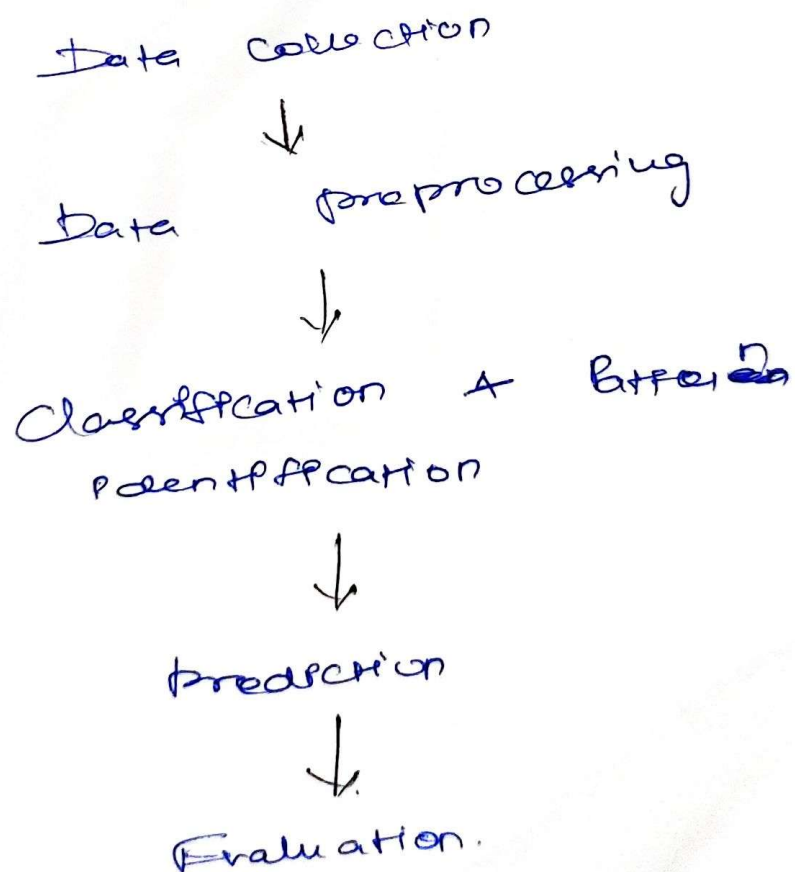 Data Collection
↓
Data preprocessing
↓
Classification & Pattern
identification
↓
prediction
↓
Evaluation.